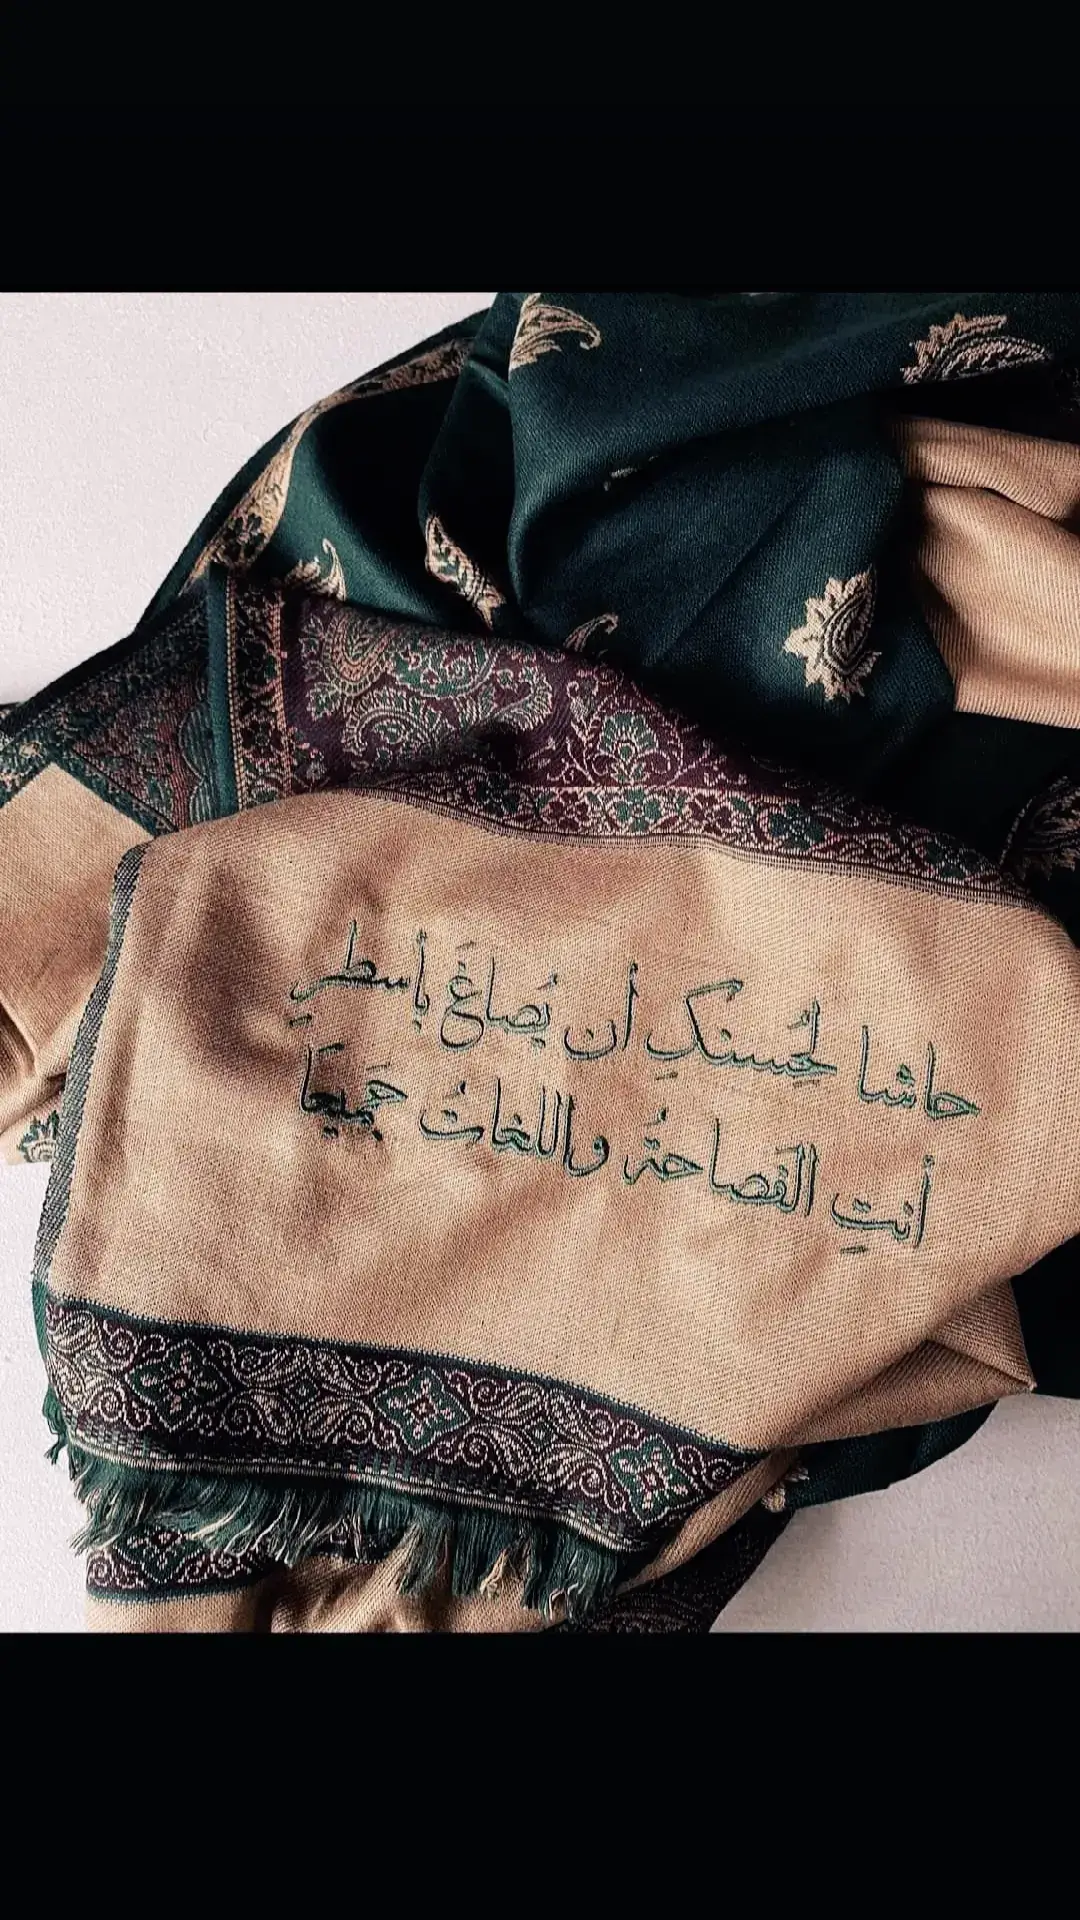 حاشا لحُسنكِ أن يُصاغَ بأسطرِ
أنتِ الفَصاحةُ واللغاتُ جَميعَا